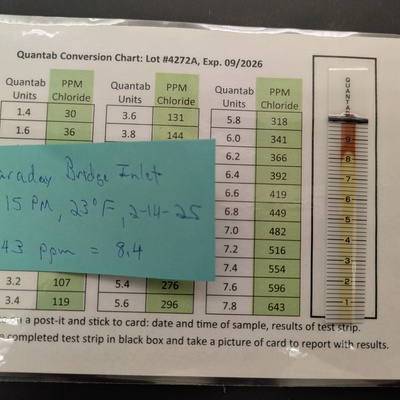 Quantab Conversion Chart: Lot #4272A, Exp. 09/2026
Quantab Units PPM Chloride Quantab Units PPM Chloride Quantab Units PPM Chloride
1.4 30 3.6 131 5.8 318
1.6 36 3.8 144 6.0 341
6.2 366
6.4 392
6.6 419
6.8 449
7.0 482
7.2 516
7.4 554
3.2 107 5.4 276 7.6 596
3.4 119 5.6 296 7.8 643
araday Bridge Inlet
15 PM, 23°F, 2-14-25
43 ppm = 8.4
on a post-it and stick to card: date and time of sample, results of test strip.
completed test strip in black box and take a picture of card to report with results.
QUANTA
9
8
7
6
5
4
3
2
1